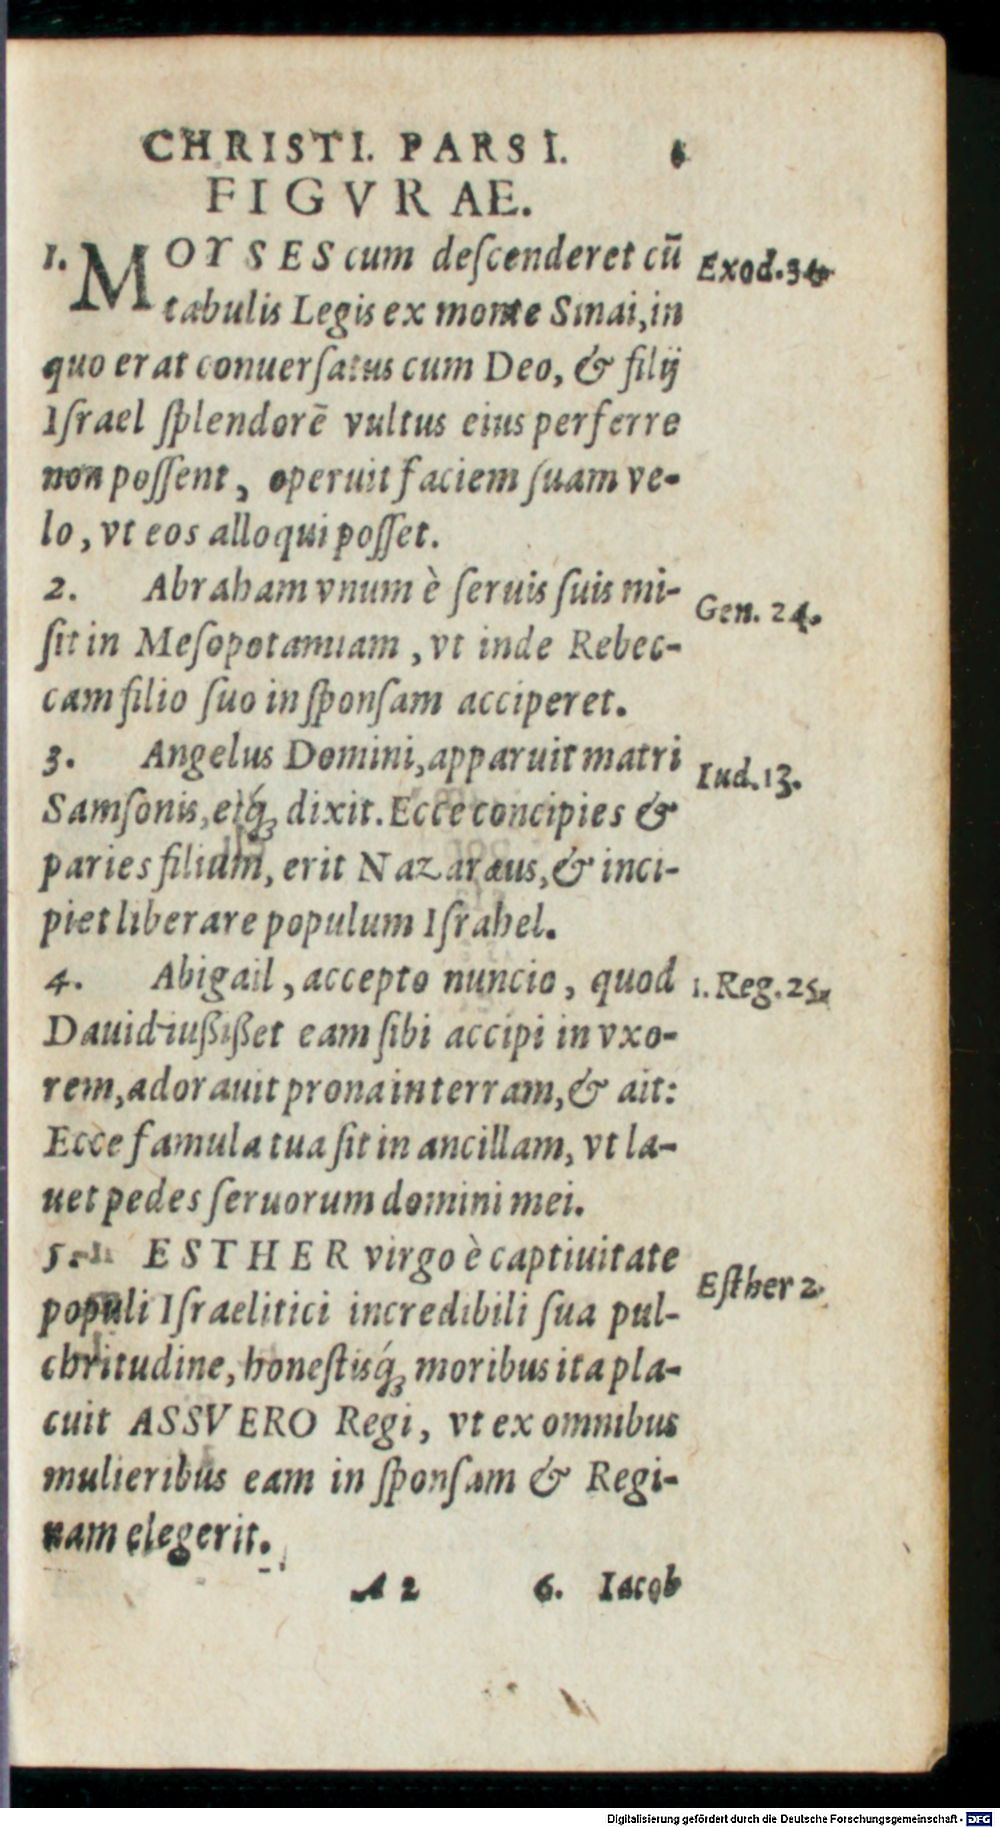 CHRISTI. PARS I.
FIGVRAE.
1. MOYSES cum deſcenderet cū Exod. 34.
tabulis Legis ex monte Sinai, in
quo erat conuerſatus cum Deo, & filij
Iſrael ſplendorē vultus eius perferre
non poſſent, operuit faciem ſuam ve-
lo, vt eos alloqui poſſet.
2. Abraham vnum è ſeruis ſuis mi- Gen. 24.
ſit in Meſopotamiam, vt inde Rebec-
cam filio ſuo in ſponſam acciperet.
3. Angelus Domini, apparuit matri Iud. 13.
Samſonis, eiq́ꝫ dixit. Ecce concipies &
paries filium, erit Nazaræus, & inci-
piet liberare populum Iſrahel.
4. Abigail, accepto nuncio, quod 1. Reg. 25.
Dauid iußißet eam ſibi accipi in vxo-
rem, adorauit prona in terram, & ait:
Ecce famula tua ſit in ancillam, vt la-
uet pedes ſeruorum domini mei.
5. ESTHER virgo è captiuitate Eſther 2.
populi Iſraelitici incredibili ſua pul-
chritudine, honeſtisq́ꝫ moribus ita pla-
cuit ASSVERO Regi, vt ex omnibus
mulieribus eam in ſponſam & Regi-
nam elegerit.
A 2 6. Iacob
Digitalisierung gefördert durch die Deutsche Forschungsgemeinschaft - DFG